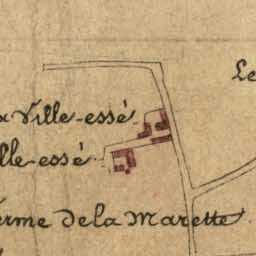 Le
a Ville-essé
lle-essé
erme de la Marette